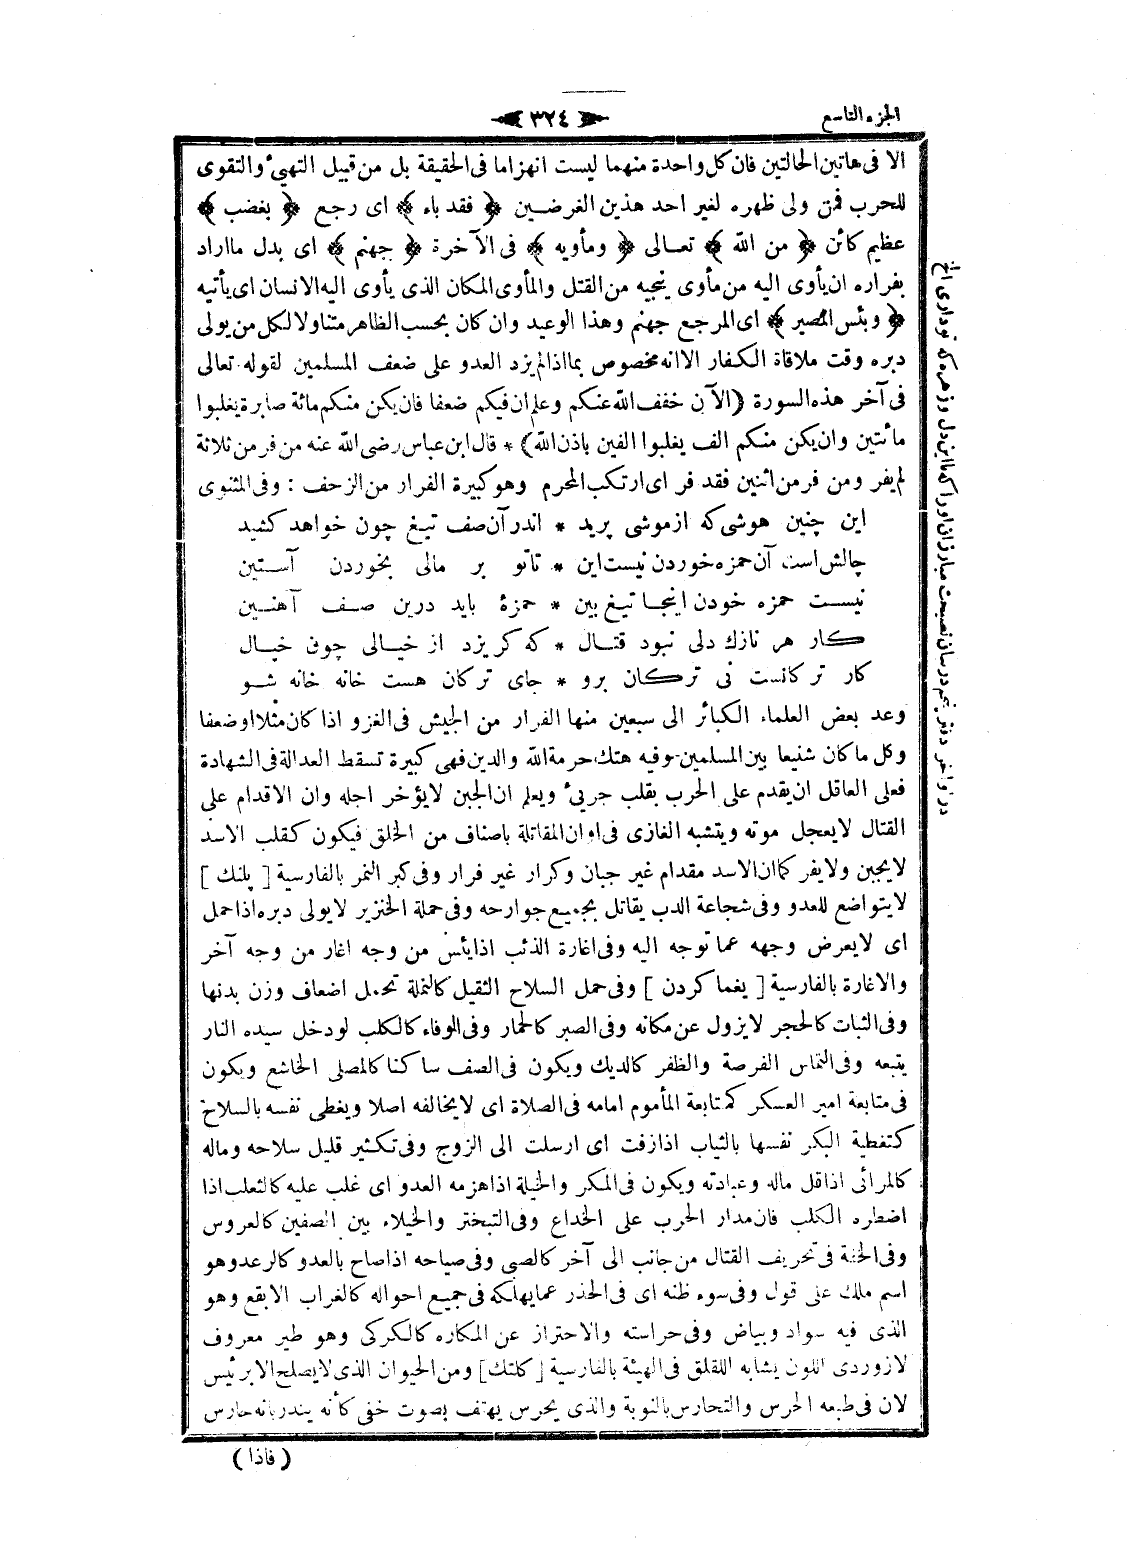 الجزء التاسع
٣٢٤
الا فى هاتين الحالتين فان كل واحدة منهما ليست انهزاما فى الحقيقة بل من قبيل التهيئ والتقوى
للحرب فمن ولى ظهره لغير احد هذين الغرضين ﴿ فقد باء ﴾ اى رجع ﴿ بغضب ﴾
عظيم كائن ﴿ من الله ﴾ تعالى ﴿ ومأويه ﴾ فى الآخرة ﴿ جهنم ﴾ اى بدل ما اراد
بفراره ان يأوى اليه من مأوى ينجيه من القتل والمأوى المكان الذى يأوى اليه الانسان اى يأتيه
﴿ وبئس المصير ﴾ اى المرجع جهنم وهذا الوعيد وان كان بحسب الظاهر متناولا لكل من يولى
دبره وقت ملاقاة الكفار الا انه مخصوص بما اذا لم يزد العدو على ضعف المسلمين لقوله تعالى
فى آخر هذه السورة ﴿ الآن خفف الله عنكم وعلم ان فيكم ضعفا فان يكن منكم مائة صابرة يغلبوا
مائتين وان يكن منكم الف يغلبوا الفين باذن الله ﴾ * قال ابن عباس رضى الله عنه من فر من ثلاثة
لم يفر ومن فر من اثنين فقد فر اى ارتكب المحرم وهو كبيرة الفرار من الزحف : وفى المثنوى
اين چنين هوشى كه ازموشى پريد * اندر آن صف تيغ چون خواهد كشيد
چالش است آن حمزه خوردن نيست اين * تاتو بر مالى بخوردن آستين
نيست حمزه خودن اينجا تيغ بين * حمزۀ بايد درين صف آهنين
كار هر نازك دلى نبود قتال * كه كريزد از خيالى چون خيال
كار تركانست نى تركان برو * جاى تركان هست خانه خانه شو
وعد بعض العلماء الكبائر الى سبعين منها الفرار من الجيش فى الغزو اذا كان مثلا او ضعفا
وكل ما كان شنيعا بين المسلمين وفيه هتك حرمة الله والدين فهى كبيرة تسقط العدالة فى الشهادة
فعلى العاقل ان يقدم على الحرب بقلب جريئ ويعلم ان الجبن لا يؤخر اجله وان الاقدام على
القتال لا يعجل موته ويتشبه الغازى فى اوان المقاتلة باصناف من الخلق فيكون كقلب الاسد
لا يجبن ولا يفر كما ان الاسد مقدام غير جبان وكرار غير فرار وفى كبر النمر بالفارسية [ پلنك ]
لا يتواضع للعدو وفى شجاعة الدب يقاتل بجميع جوارحه وفى حملة الخنزير لا يولى دبره اذا حمل
اى لا يعرض وجهه عما توجه اليه وفى اغارة الذئب اذا يئس من وجه اغار من وجه آخر
والاغارة بالفارسية [ يغما كردن ] وفى حمل السلاح الثقيل كالنملة تحمل اضعاف وزن بدنها
وفى الثبات كالحجر لا يزول عن مكانه وفى الصبر كالحمار وفى الوفاء كالكلب لو دخل سيده النار
يتبعه وفى التماس الفرصة والظفر كالديك ويكون فى الصف ساكنا كالمصلى الخاشع ويكون
فى متابعة امير العسكر كمتابعة المأموم امامه فى الصلاة اى لا يخالفه اصلا ويغطى نفسه بالسلاح
كتغطية البكر نفسها بالثياب اذا زفت اى ارسلت الى الزوج وفى تكثير قليل سلاحه وماله
كالمرائى اذا قل ماله وعبادته ويكون فى المكر والحيلة اذا هزمه العدو اى غلب عليه كالثعلب اذا
اضطره الكلب فان مدار الحرب على الخداع وفى التبختر والخيلاء بين الصفين كالعروس
وفى الخفة فى تحريف القتال من جانب الى آخر كالصبى وفى صياحه اذا صاح بالعدو كالرعد وهو
اسم ملك على قول وفى سوء ظنه اى فى الحذر عما يهلكه فى جميع احواله كالغراب الابقع وهو
الذى فيه سواد وبياض وفى حراسته والاحتراز عن المكاره كالكركى وهو طير معروف
لازوردى اللون يشابه اللقلق فى الهيئة بالفارسية [ كلنك ] ومن الحيوان الذى لا يصلح الا برئيس
لان فى طبعه الحرس والتحارس بالنوبة والذى يحرس يهتف بصوت خفى كأنه ينذر بانه حارس
( فاذا )
در اواخر دفتر پنجم در بيان نصيحت مبارزان او را كه با اين دل و زهره كه تو دارى الخ